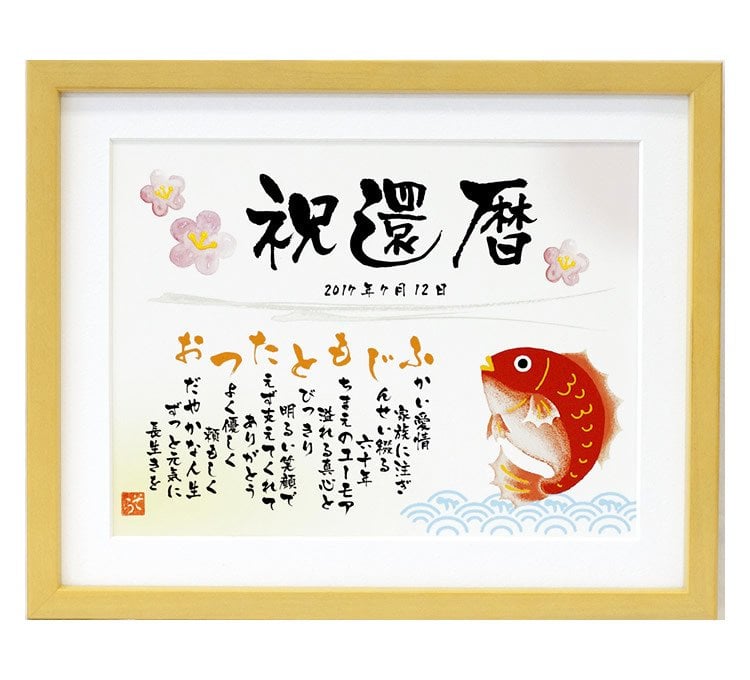 祝還暦
2017年7月12日
ふかい愛情
家族に注ぎ
じんせい綴る
六十年
もちまえのユーモア
溢れる真心と
とびっきり
明るい笑顔で
たえず支えてくれて
ありがとう
つよく優しく
頼もしく
おだやかな人生
ずっと元気に
長生きを